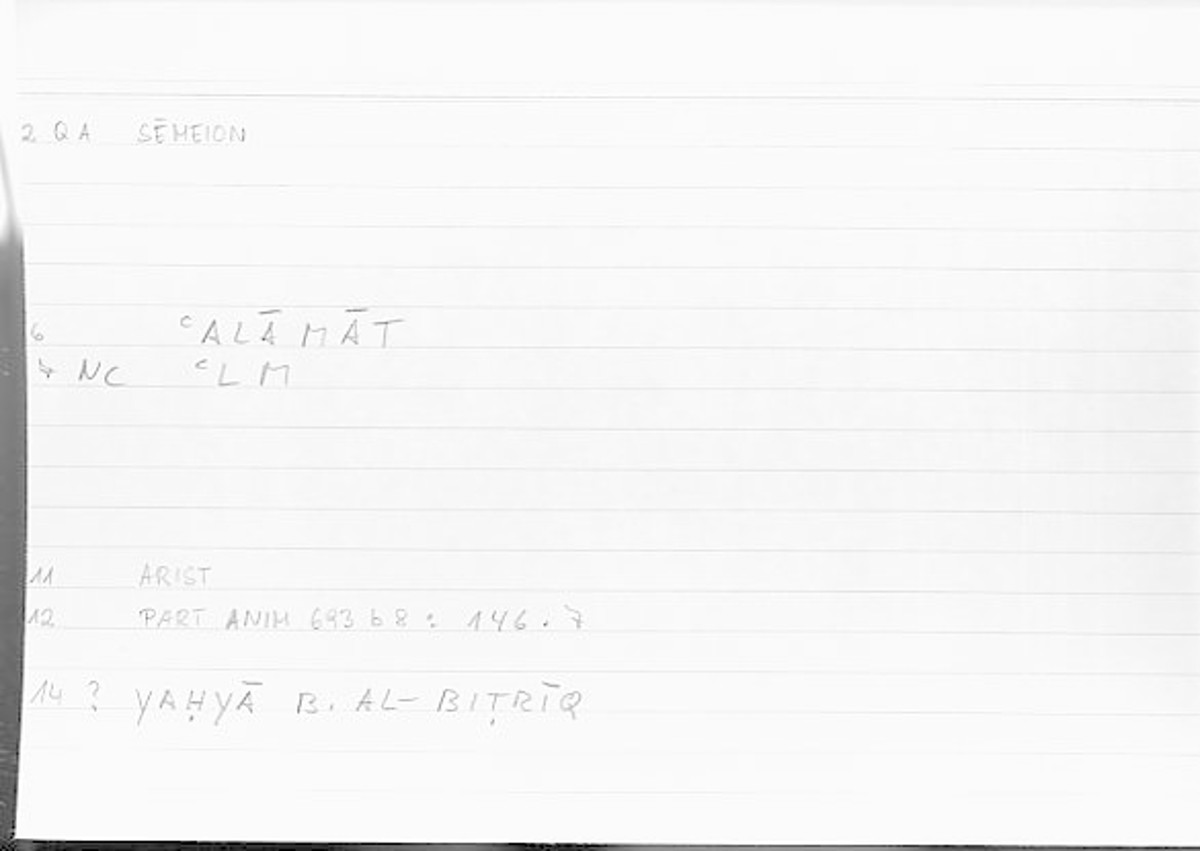 2 QA SĒMEION
6 ᶜALĀMĀT
↳ NC ᶜLM
11 ARIST
12 PART ANIM 693 b 8 : 146.7
14 ? YAḤYĀ B. AL-BIṬRĪQ